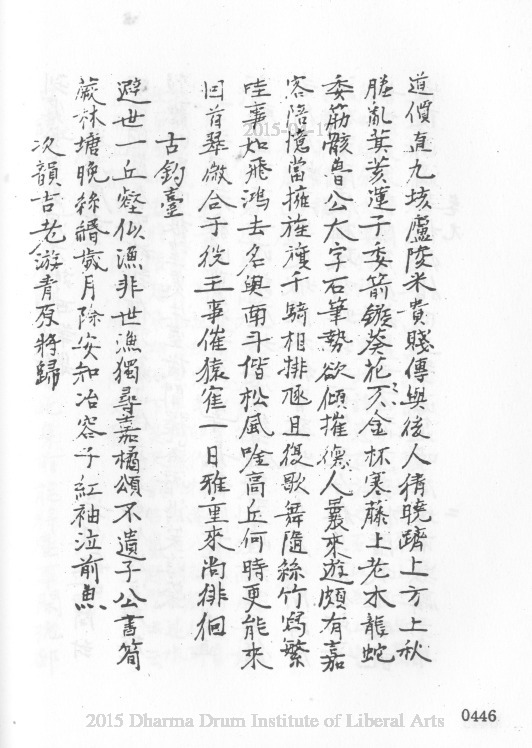 道價直九垓廬陵米貴賤傳與後人猜曉躋上方上秋
塍亂萁荄蓮子委箭鏃葵花金杯寒藤上老木龍蛇
委筋骸魯公大字石筆勢欲傾摧德人曩來遊頗有嘉
客陪憶當擁旌千騎相排豗且復歌舞隨絲竹寫繁
哇事如飛鴻去名與南斗偕松風唫高丘何時更能來
囘首翠微合于役王事催猿寉一日雅重來尚徘徊
古釣臺
避世一丘壑似漁非世漁獨尋嘉橘頌不遺子公書筍
蕨林塘晚絲緡歲月除安知冶容子紅袖泣前魚
次韻吉老游青原將歸
2015 Dharma Drum Institute of Liberal Arts
0446